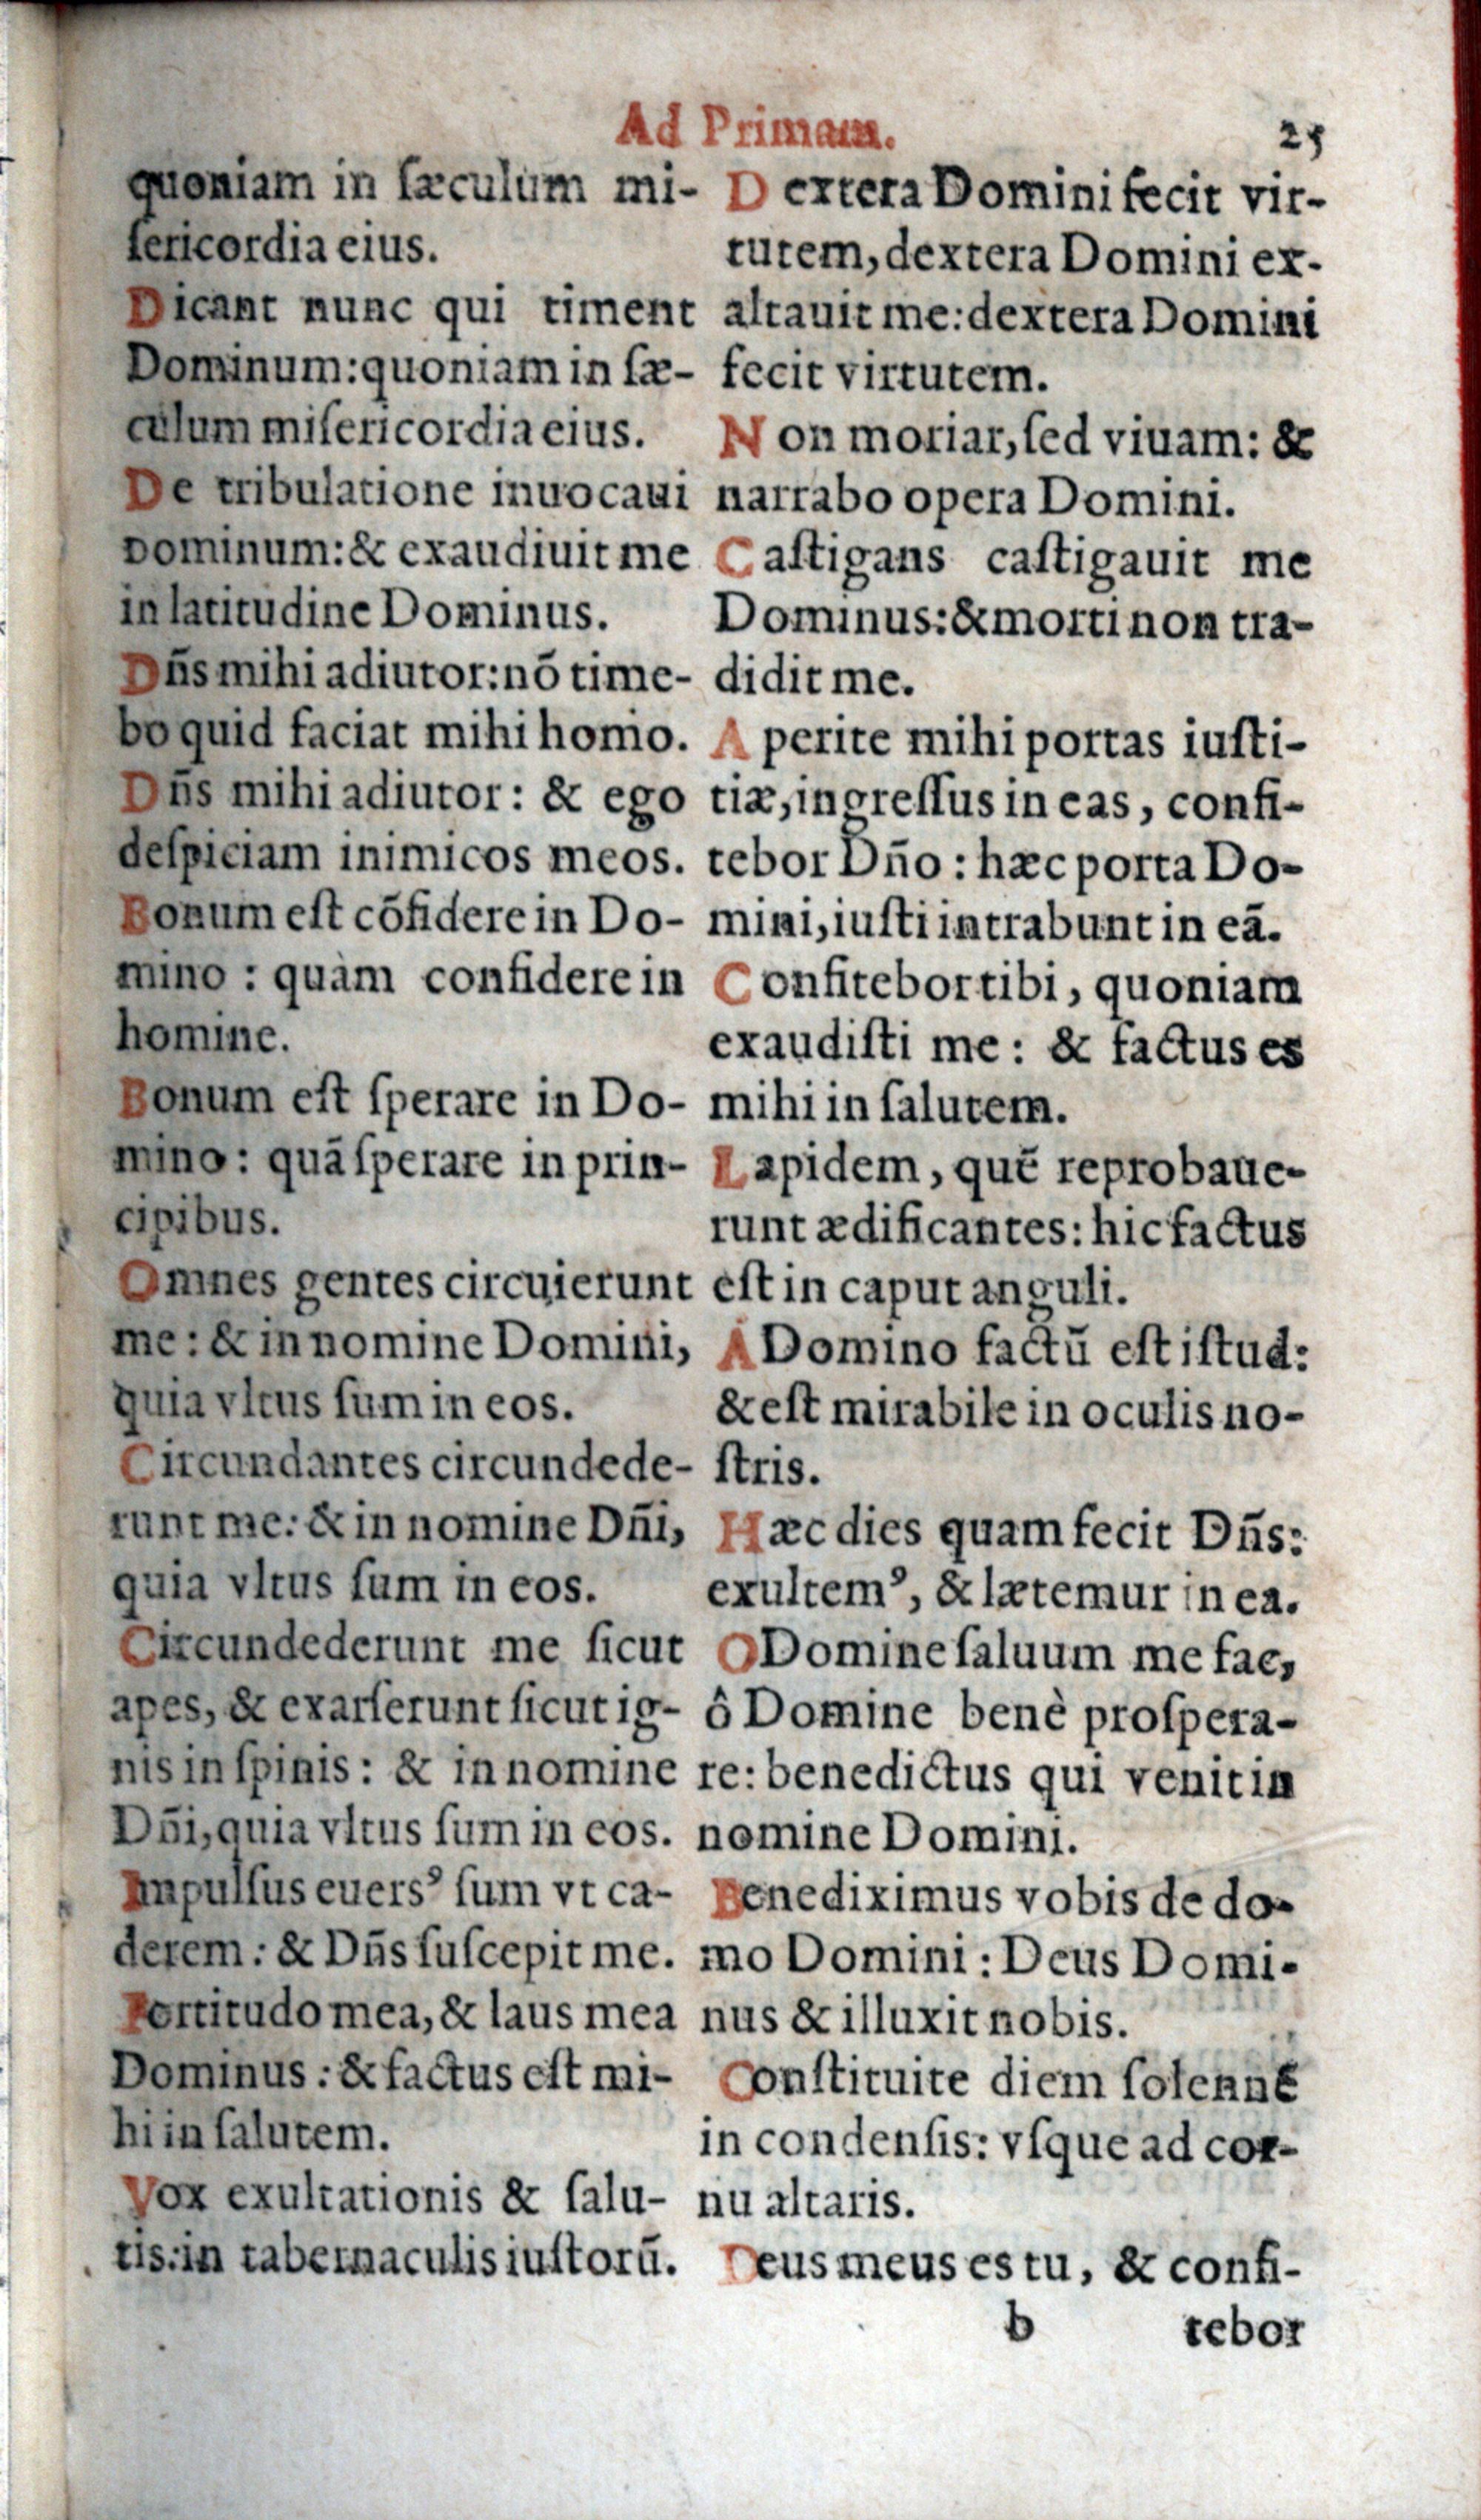 Ad Primam.
25
quoniam in ſæculum mi-
ſericordia eius.
Dicant nunc qui timent
Dominum: quoniam in ſæ-
culum miſericordia eius.
De tribulatione inuocaui
Dominum: & exaudiuit me
in latitudine Dominus.
Dñs mihi adiutor: nõ time-
bo quid faciat mihi homo.
Dñs mihi adiutor: & ego
deſpiciam inimicos meos.
Bonum eſt cõfidere in Do-
mino: quàm confidere in
homine.
Bonum eſt ſperare in Do-
mino: quã ſperare in prin-
cipibus.
Omnes gentes circuierunt
me: & in nomine Domini,
quia vltus ſum in eos.
Circundantes circundede-
runt me: & in nomine Dñi,
quia vltus ſum in eos.
Circundederunt me ſicut
apes, & exarſerunt ſicut ig-
nis in ſpinis: & in nomine
Dñi, quia vltus ſum in eos.
Impulſus euersꝰ ſum vt ca-
derem: & Dñs ſuſcepit me.
Fortitudo mea, & laus mea
Dominus: & factus eſt mi-
hi in ſalutem.
Vox exultationis & ſalu-
tis: in tabernaculis iuſtorũ.
Dextera Domini fecit vir-
tutem, dextera Domini ex-
altauit me: dextera Domini
fecit virtutem.
Non moriar, ſed viuam: &
narrabo opera Domini.
Caſtigans caſtigauit me
Dominus: & morti non tra-
didit me.
Aperite mihi portas iuſti-
tiæ, ingreſſus in eas, confi-
tebor Dño: hæc porta Do-
mini, iuſti intrabunt in eã.
Confitebor tibi, quoniam
exaudiſti me: & factus es
mihi in ſalutem.
Lapidem, quẽ reprobaue-
runt ædificantes: hic factus
eſt in caput anguli.
A Domino factũ eſt iſtud:
& eſt mirabile in oculis no-
ſtris.
Hæc dies quam fecit Dñs:
exultemꝰ, & lætemur in ea.
O Domine ſaluum me fac,
ô Domine benè proſpera-
re: benedictus qui venit in
nomine Domini.
Benediximus vobis de do-
mo Domini: Deus Domi-
nus & illuxit nobis.
Conſtituite diem ſolennẽ
in condenſis: vſque ad cor-
nu altaris.
Deus meus es tu, & confi-
b
tebor